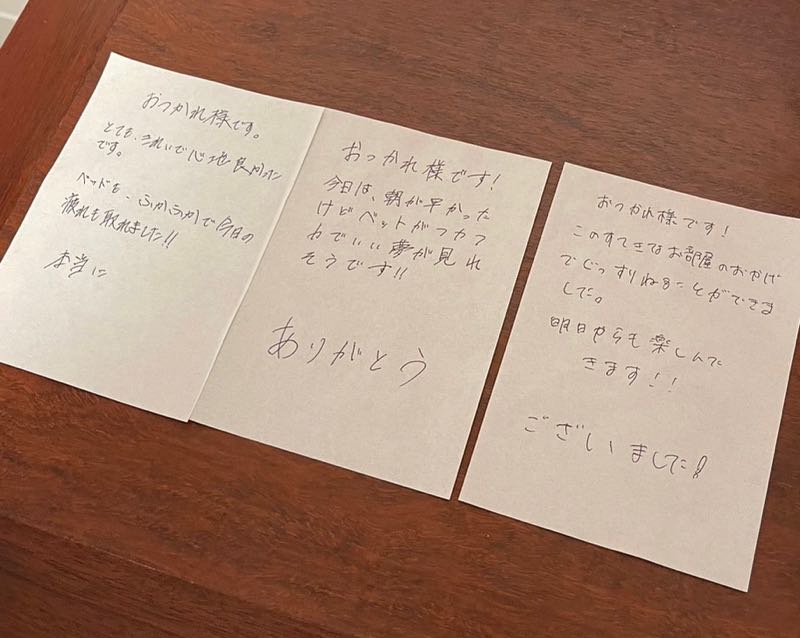 おつかれ様です。
とても、きれいで心地良いオン
です。
ベッドも、ふかふかで今日の
疲れも取れました!!
本当に
おつかれ様です!
今日は、朝が早かった
けどベットがフカフ
カでいい夢が見れ
そうです!!
ありがとう
おつかれ様です!
このすてきなお部屋のおかげ
でぐっすりねることができま
した。
明日からも楽しんで
きます!!
ございました!